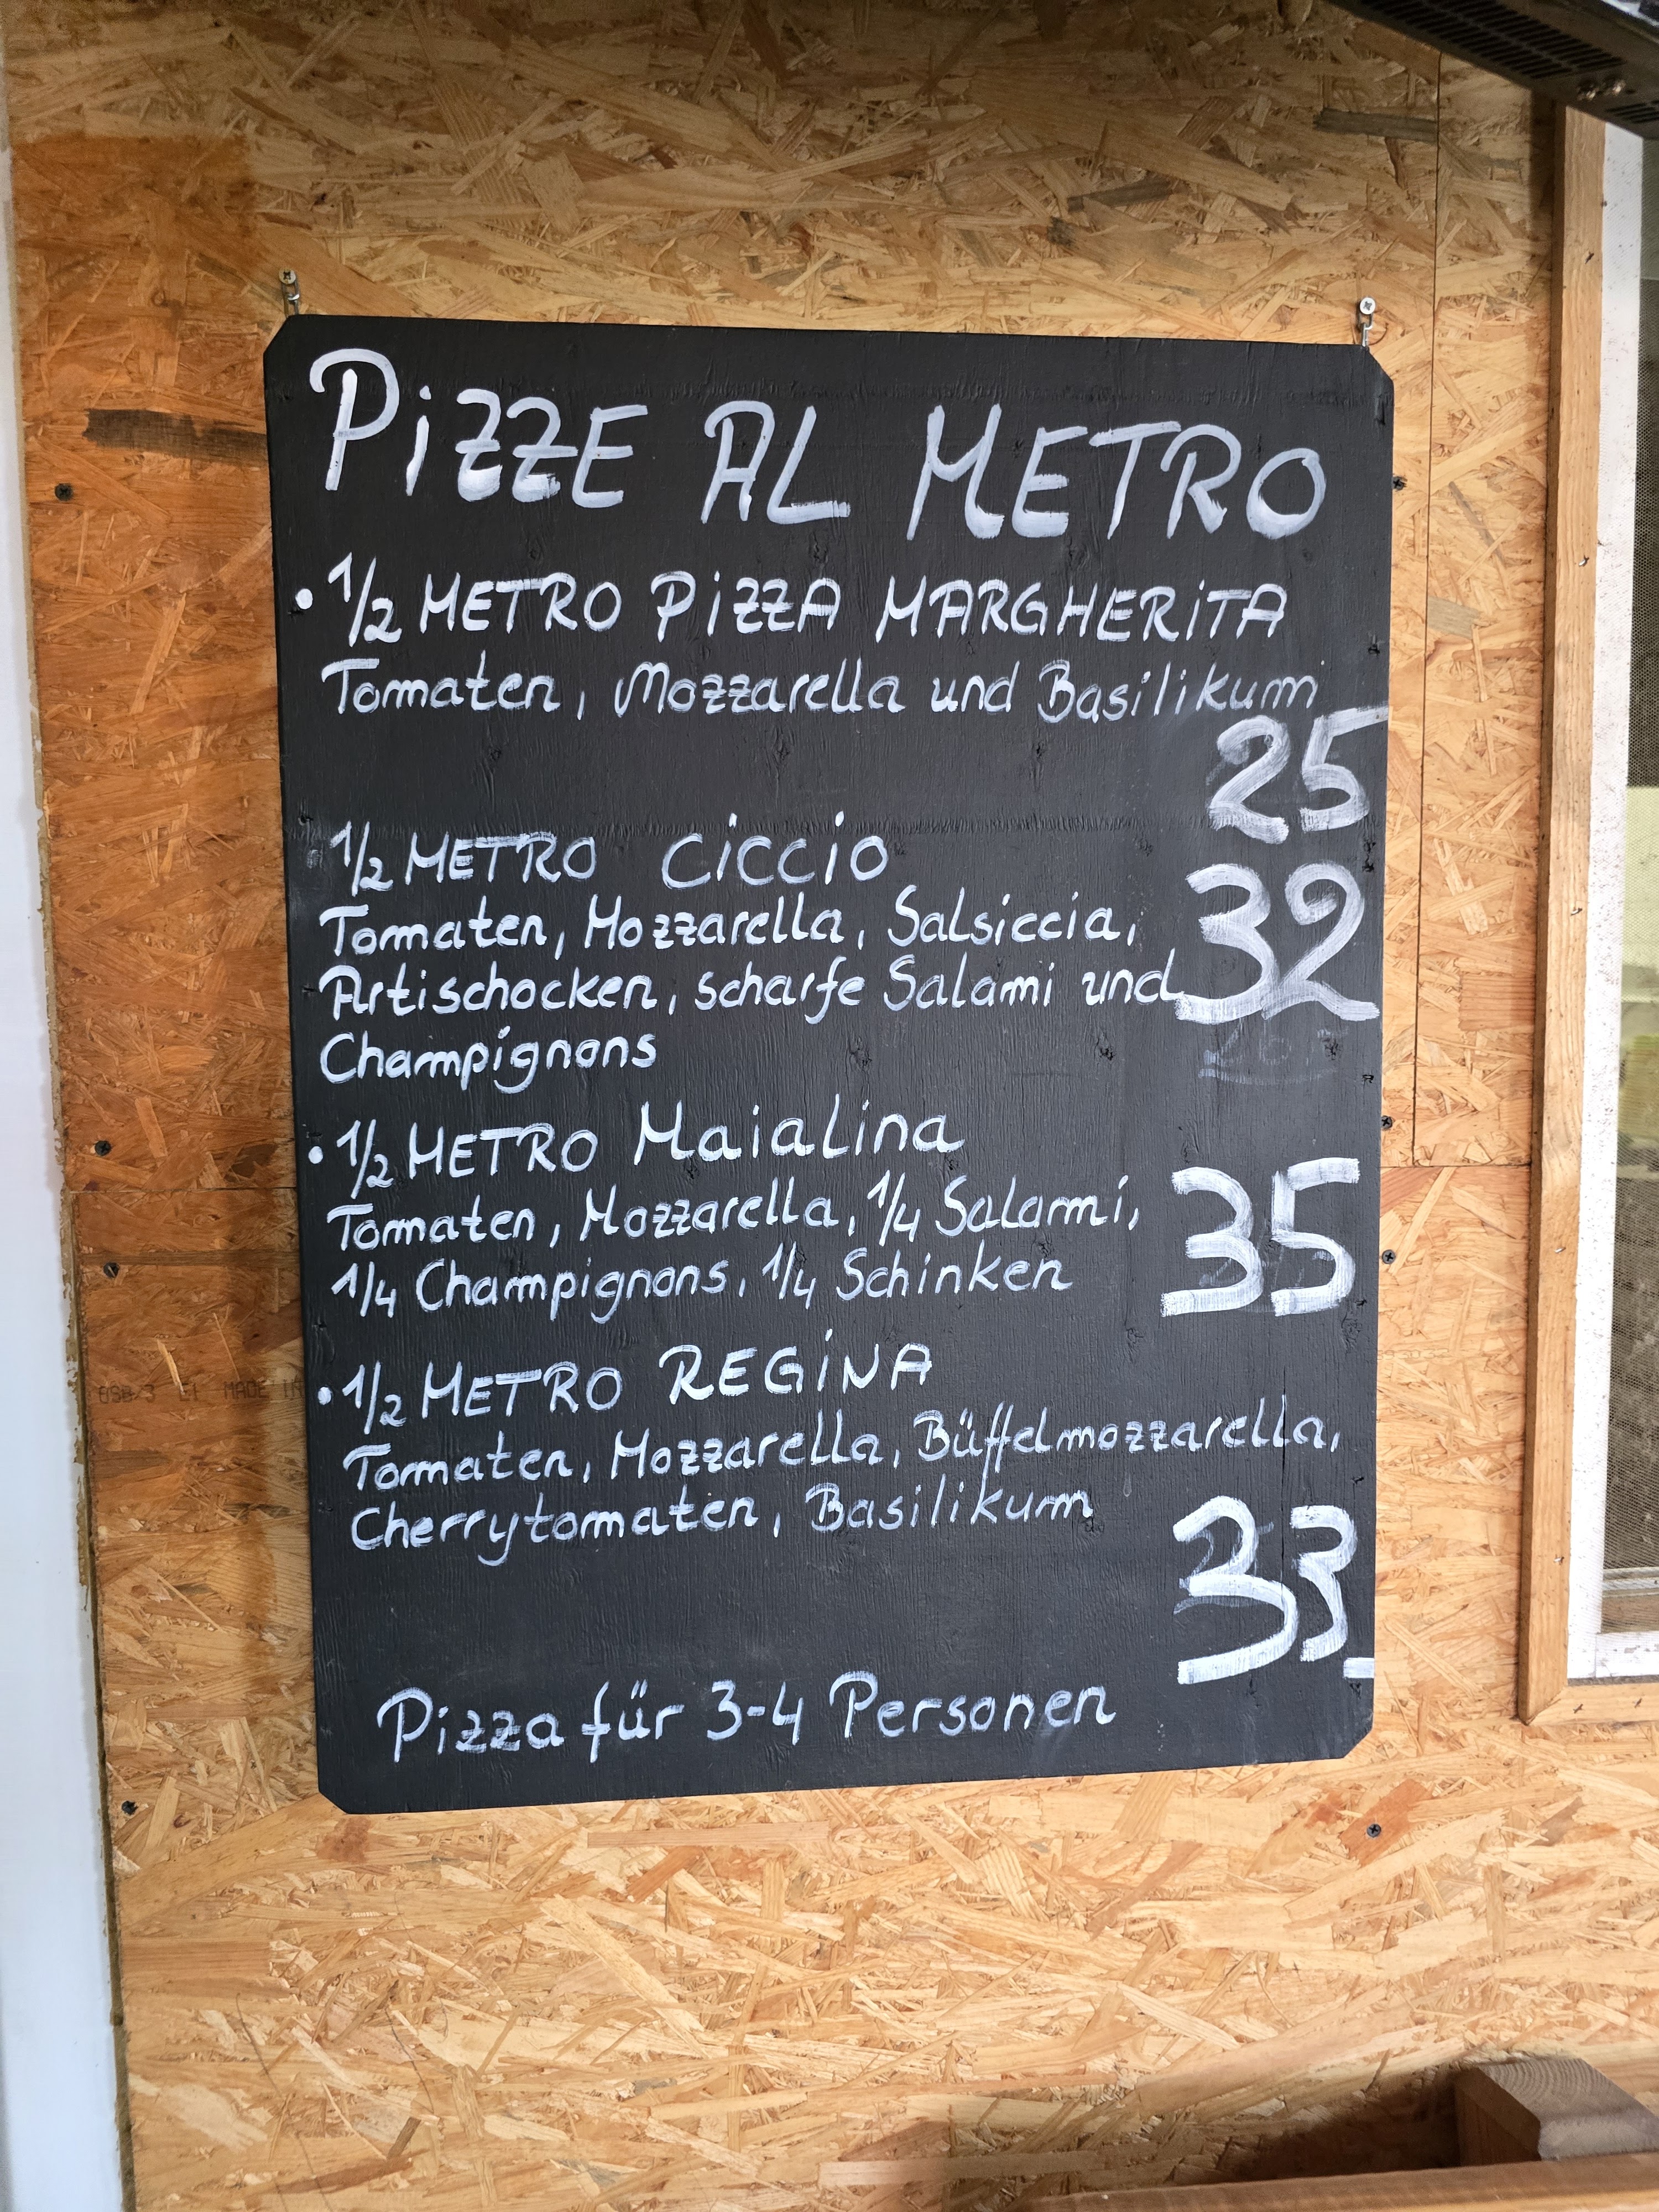 PiZZE AL METRO
• 1/2 METRO PiZZA MARGHERiTA
Tomaten, Mozzarella und Basilikum
25
1/2 METRO CiCCiO
Tomaten, Mozzarella, Salsiccia,
32
Artischocken, scharfe Salami und
Champignons
• 1/2 METRO MaiaLina
Tomaten, Mozzarella, 1/4 Salami,
35
1/4 Champignons, 1/4 Schinken
• 1/2 METRO REGiNA
Tomaten, Mozzarella, Büffelmozzarella,
Cherrytomaten, Basilikum
33
Pizza für 3-4 Personen